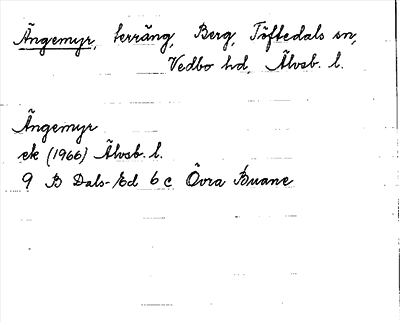 Ängemyr, terräng, Berg, Töftedals sn,
Vedbo hd, Älvsb. l.
Ängemyr
ek (1966) Älvsb. l.
9 B Dals-Ed 6 c Övra Buane